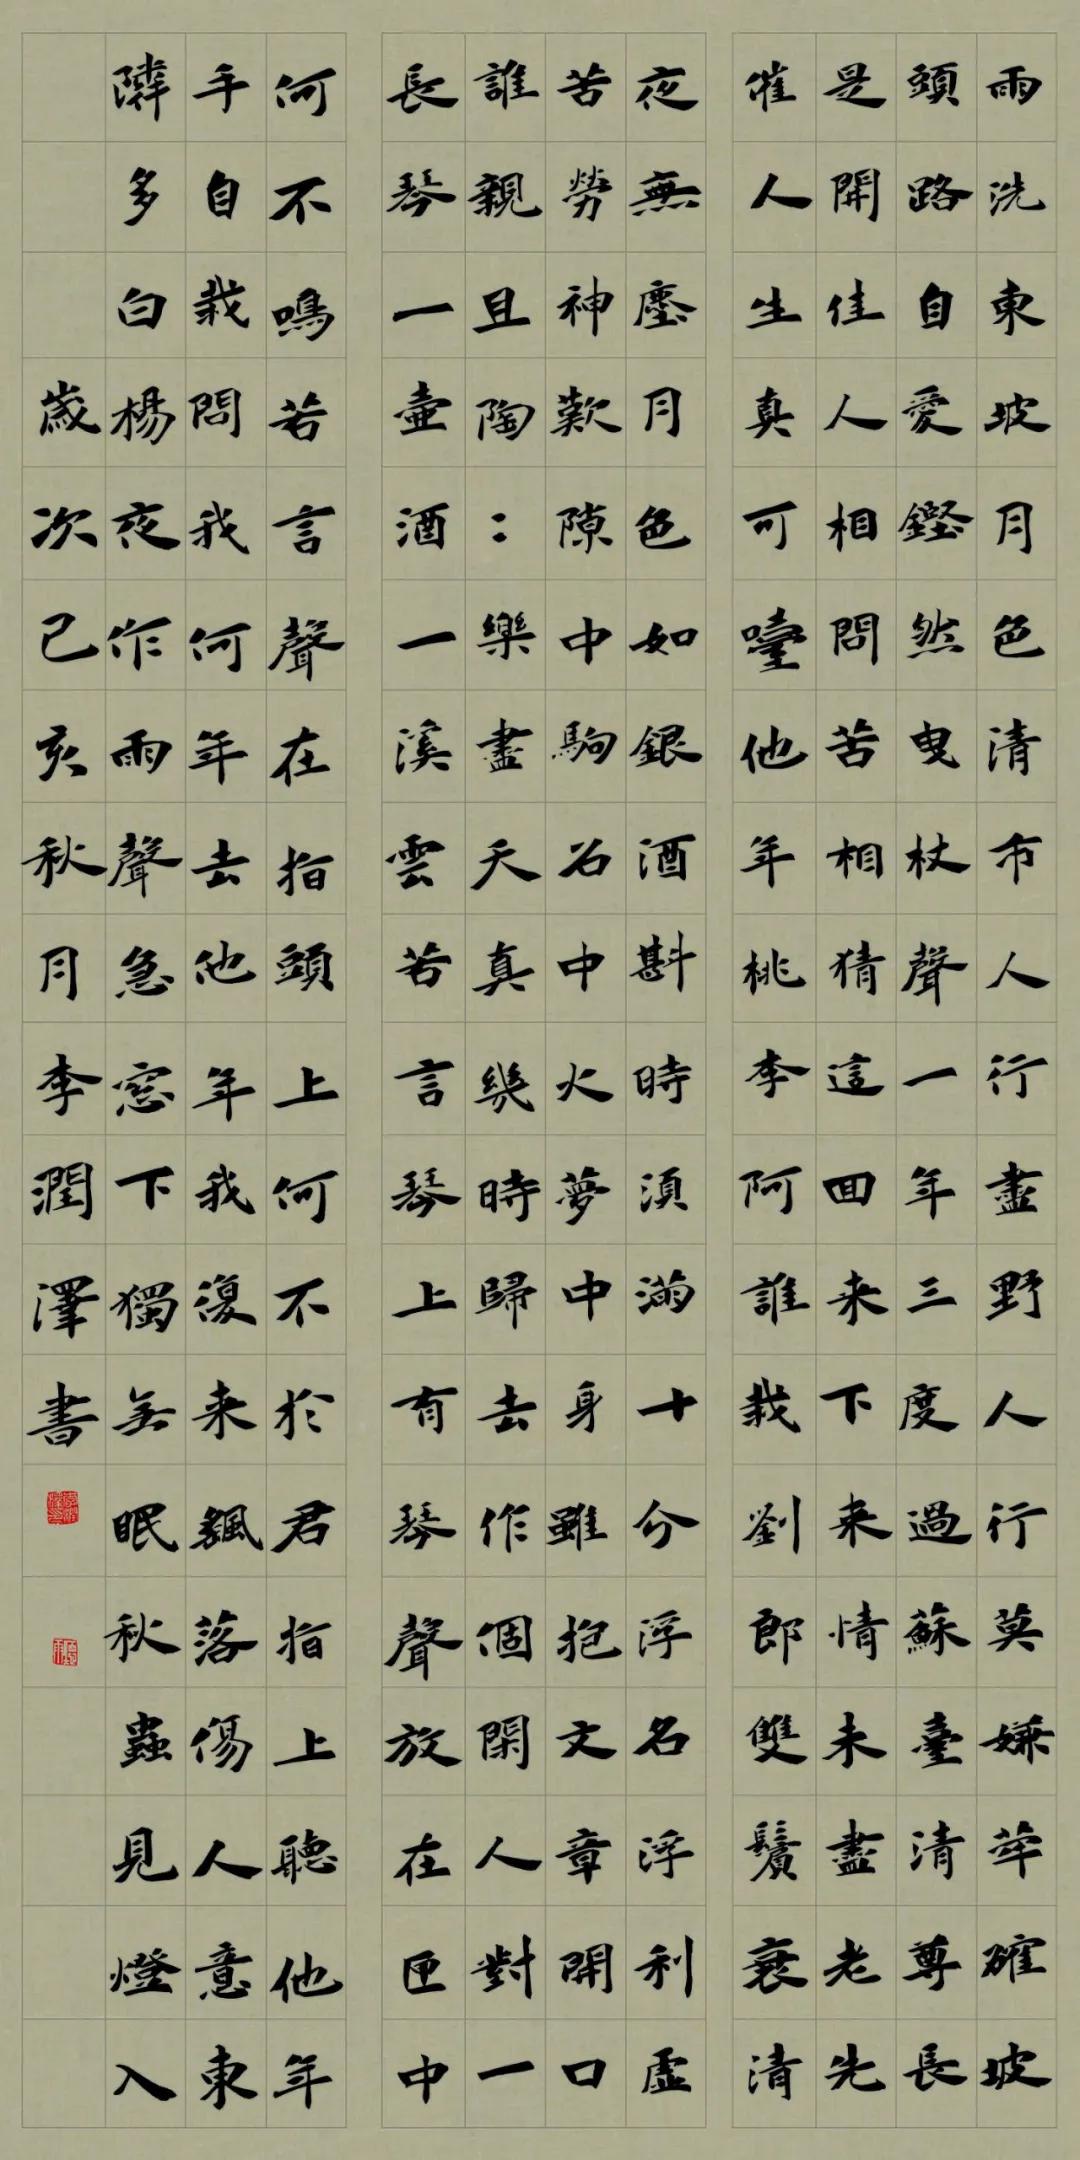 雨洗東坡月色清市人行盡野人行莫嫌犖確坡
頭路自愛鏗然曳杖聲一年三度過蘇臺清尊長
是開佳人相問苦相猜這回来下来情未盡老先
催人生真可他年桃李阿誰栽劉郎雙鬢衰清
夜無塵月色如銀酒斟時須滿十分浮名浮利虛
苦勞神歎隙中駒石中火夢中身雖抱文章開口
誰親且陶：樂盡天真幾時歸去作個閑人對一
長琴一壺酒一溪雲若言琴上有琴聲放在匣中
何不鳴若言聲在指頭上何不於君指上聽他年
手自栽問我何年去他年我復来飄落傷人意東
隣多白楊夜作雨聲急窓下獨無眠秋蟲見燈入
歲次己亥秋月李潤澤書